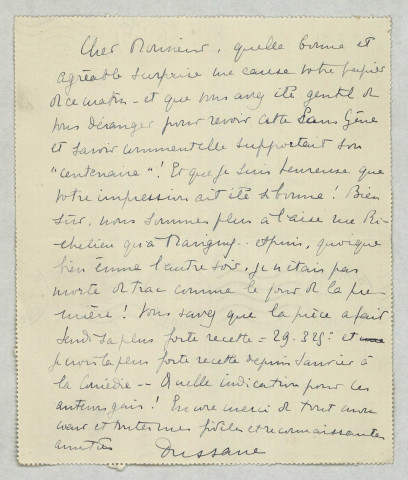 Cher Monsieur, quelle bonne et
agréable surprise me cause votre papier
de ce matin - et que vous avez été gentil de
vous déranger pour revoir cette Sans Gêne
et savoir comment elle supportait son
"centenaire"! Et que je suis heureuse que
votre impression ait été si bonne! Bien
sûr, nous sommes plus à l'aise rue Ri-
chelieu qu'à Marigny.. et puis, quoique
bien émue l'autre soir, je n'étais pas
morte de trac comme le jour de la pre-
mière! Vous savez que la pièce a fait
Jeudi sa plus forte recette = 29.325: et
je crois la plus forte recette depuis Janvier à
la Comédie -- Quelle indication pour les
auteurs gais! Encore merci de tout mon
cœur et toutes mes fidèles et reconnaissantes
amitiés Dussane